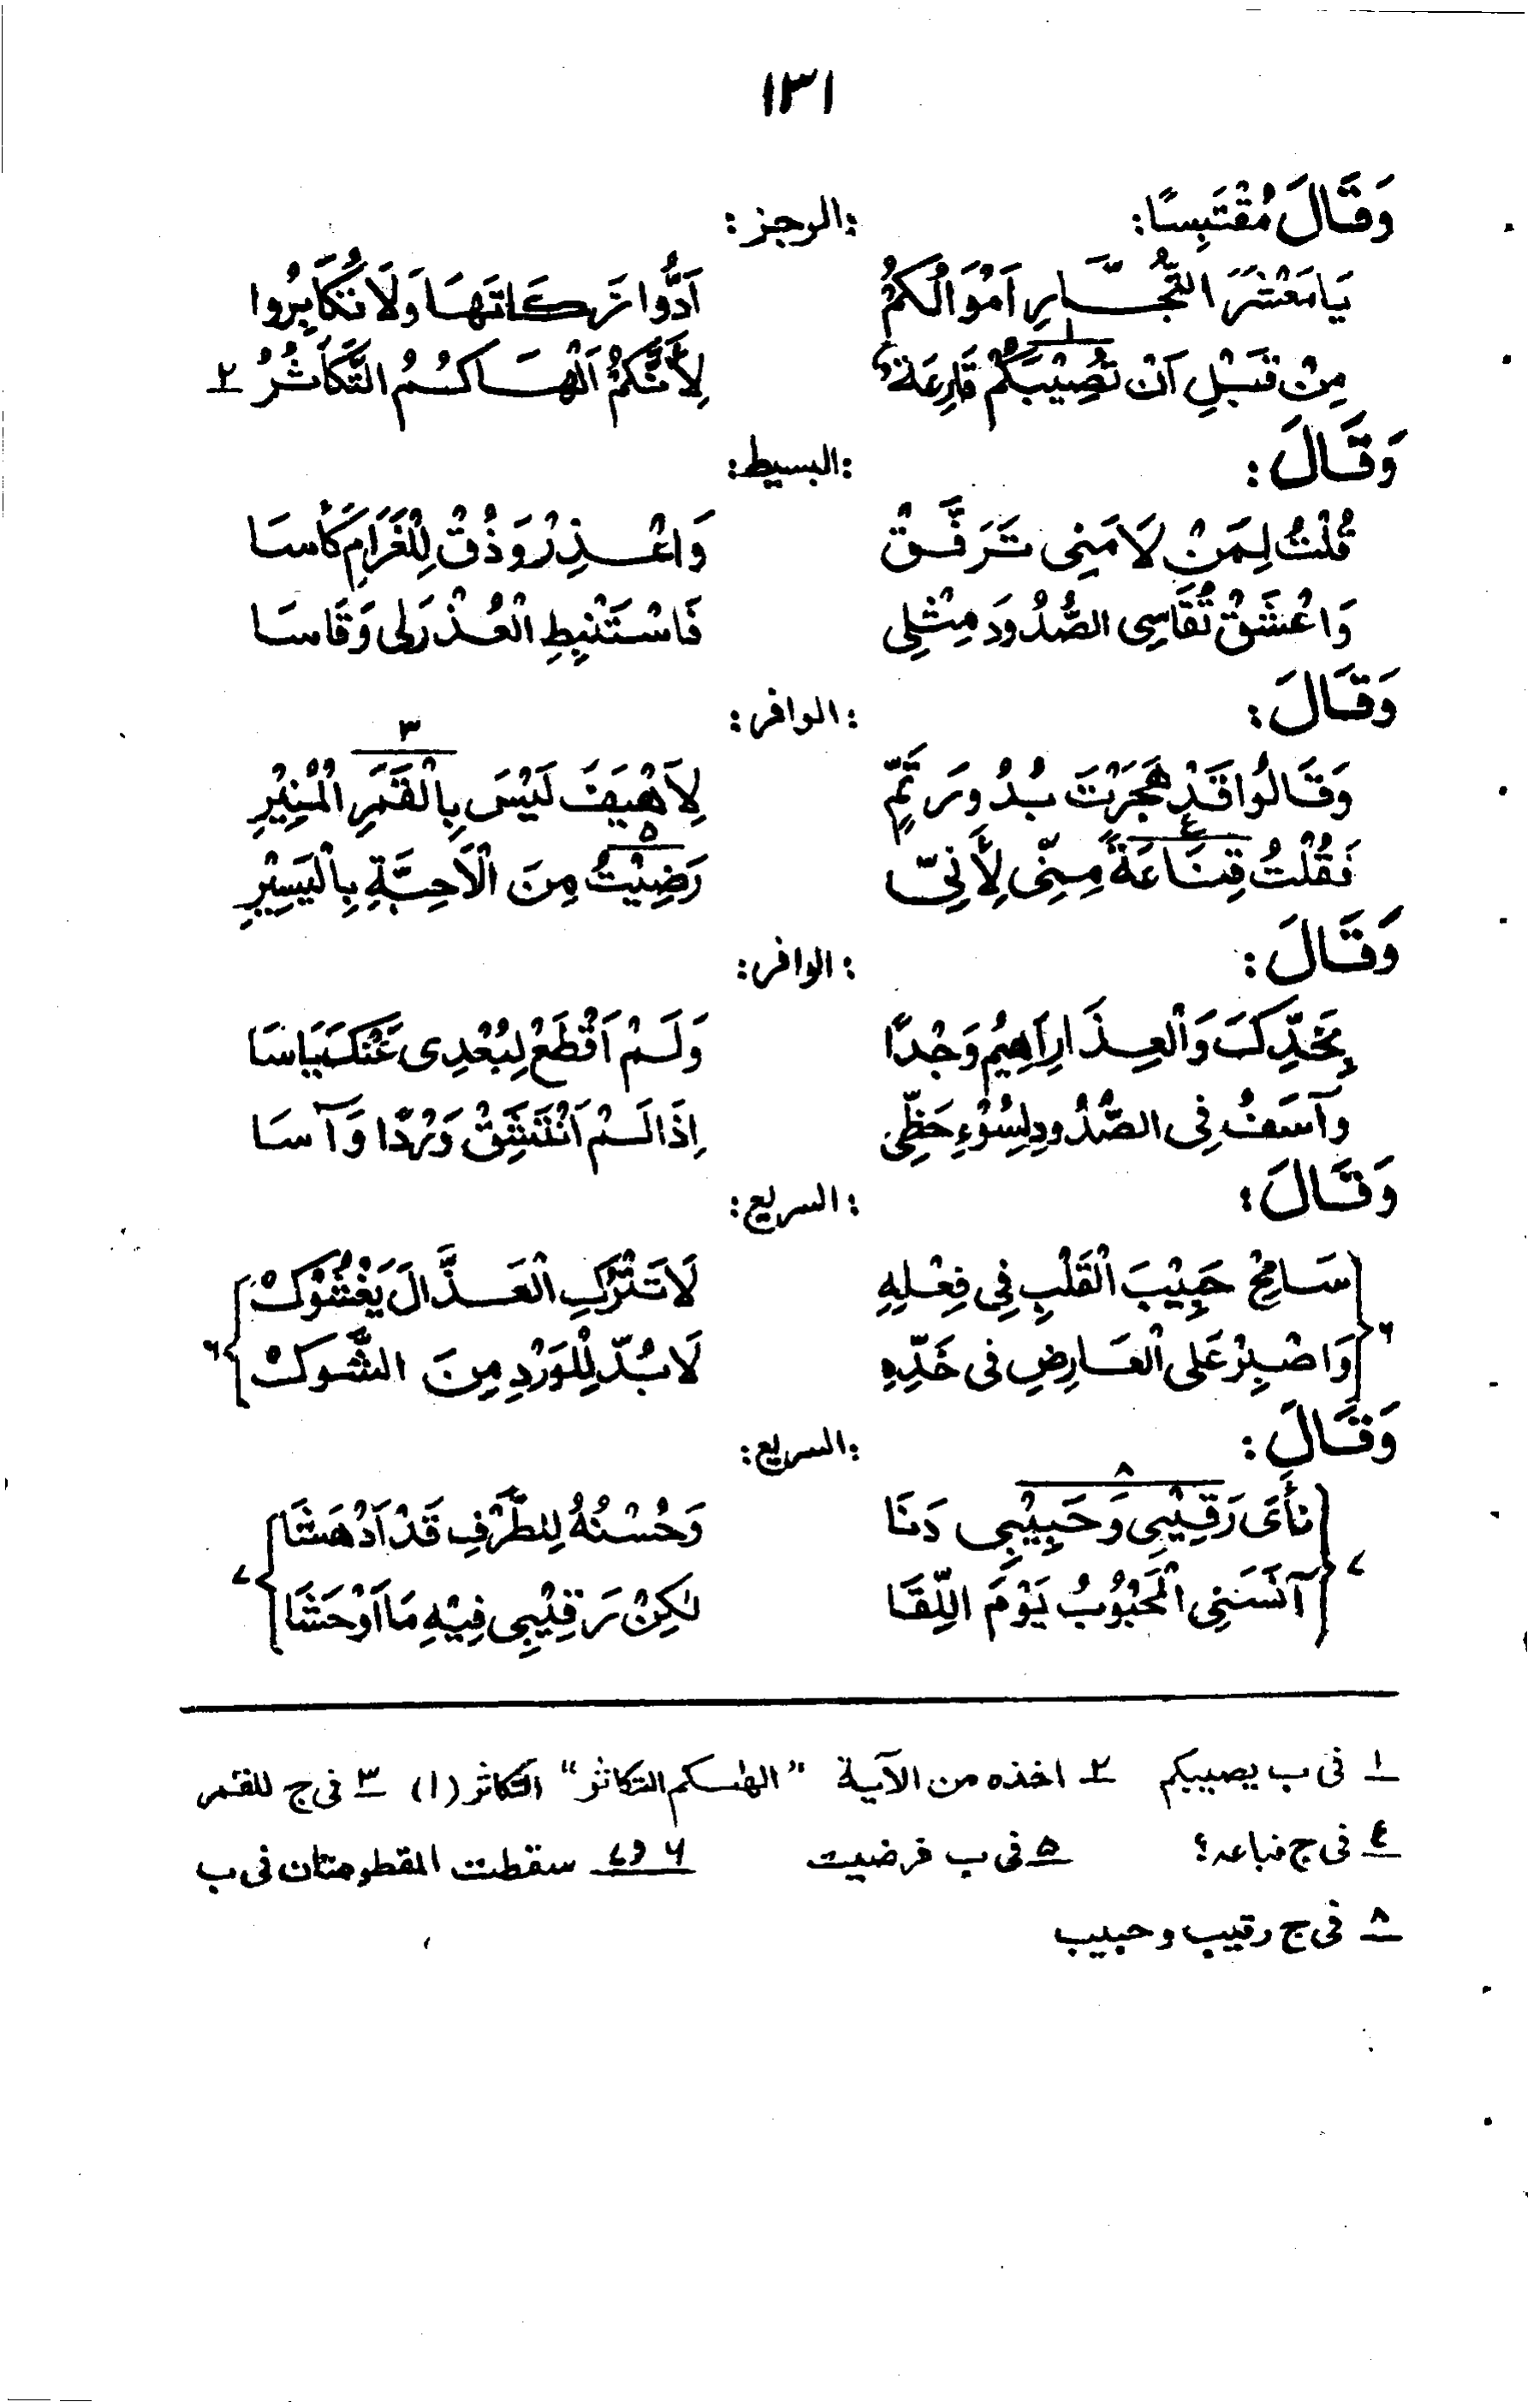 ١٣١
وَقَالَ مُقْتَبِسًا: :الرجز:
يَا مَعْشَرَ التُّجَّارِ اَمْوَالَكُمْ اَدُّوا زَكَاتَهَا وَلَا تُكَابِرُوا
مِنْ قَبْلِ اَنْ تُصِيْبَكُمْ ١ قَارِعَةٌ لِأَنَّكُمْ اَلْهَاكُمُ التَّكَاثُرُ ٢
وَقَالَ: :البسيط:
قُلْتُ لِمَنْ لَامَنِى تَرَفَّقْ وَاعْذِرْ وَذُقْ لِلْغَرَامِ كَأسَا
وَاعْشَقْ تُقَاسِى الصُّدُودَ مِثْلِى فَاسْتَنْبِطِ الْعُذْرَ لِى وَقَاسَا
وَقَالَ: :الوافر:
وَقَالُوا قَدْ هَجَرْتَ بُدُورَ تَمٍّ لِأَهْيَفَ لَيْسَ بِالْقَمَرِ ٣ الْمُنِيْرِ
فَقُلْتُ قِنَاعَةً ٤ مِنِّى لِأَنِّى رَضِيْتُ ٥ مِنَ الْاَحِبَّةِ بِالْيَسِيْرِ
وَقَالَ: :الوافر:
بِخَدِّكَ وَالْعِذَارِ اَهِيْمُ وَجْدًا وَلَمْ اَقْطَعْ لِبُعْدِى عَنْكَ يَاسَا
وَآسَفُ فِى الصُّدُودِ لِسُوْءِ حَظِّى اِذَا لَمْ اَنْتَشِقْ وَرْدًا وَآسَا
وَقَالَ: :السريع:
٦ سَامِحْ حَبِيْبَ الْقَلْبِ فِى فِعْلِهِ لَا تَتْرُكِ الْعَذَّالَ يَغْشُوْكْ ٦
وَاصْبِرْ عَلَى الْعَارِضِ فى خَدِّهِ لَا بُدّ لِلْوَرْدِ مِنَ الشَّوكْ
وَقَالَ: :السريع:
٧ نأَى رَقِيْبِى وَحَبِيْبِى ٨ دَنَا وَحُسْنُهُ لِلطَّرْفِ قَدْ اَدْهَشَا ٧
آنَسَنِى الْمَحْبُوْبُ يَوْمَ اللِّقَا لٰكِنْ رَقِيْبِى فِيْهِ مَا اَوْحَشَا
١ فى ب يصيبكم ٢ اخذه من الآية "الهٰكم التكاثر" التكاثر (١) ٣ فى ج للقمر
٤ فى ج قباعه؟ ٥ فى ب فرضيت ٦ و ٧ سقطت المقطوعتان فى ب
٨ فى ج رقيب وحبيب